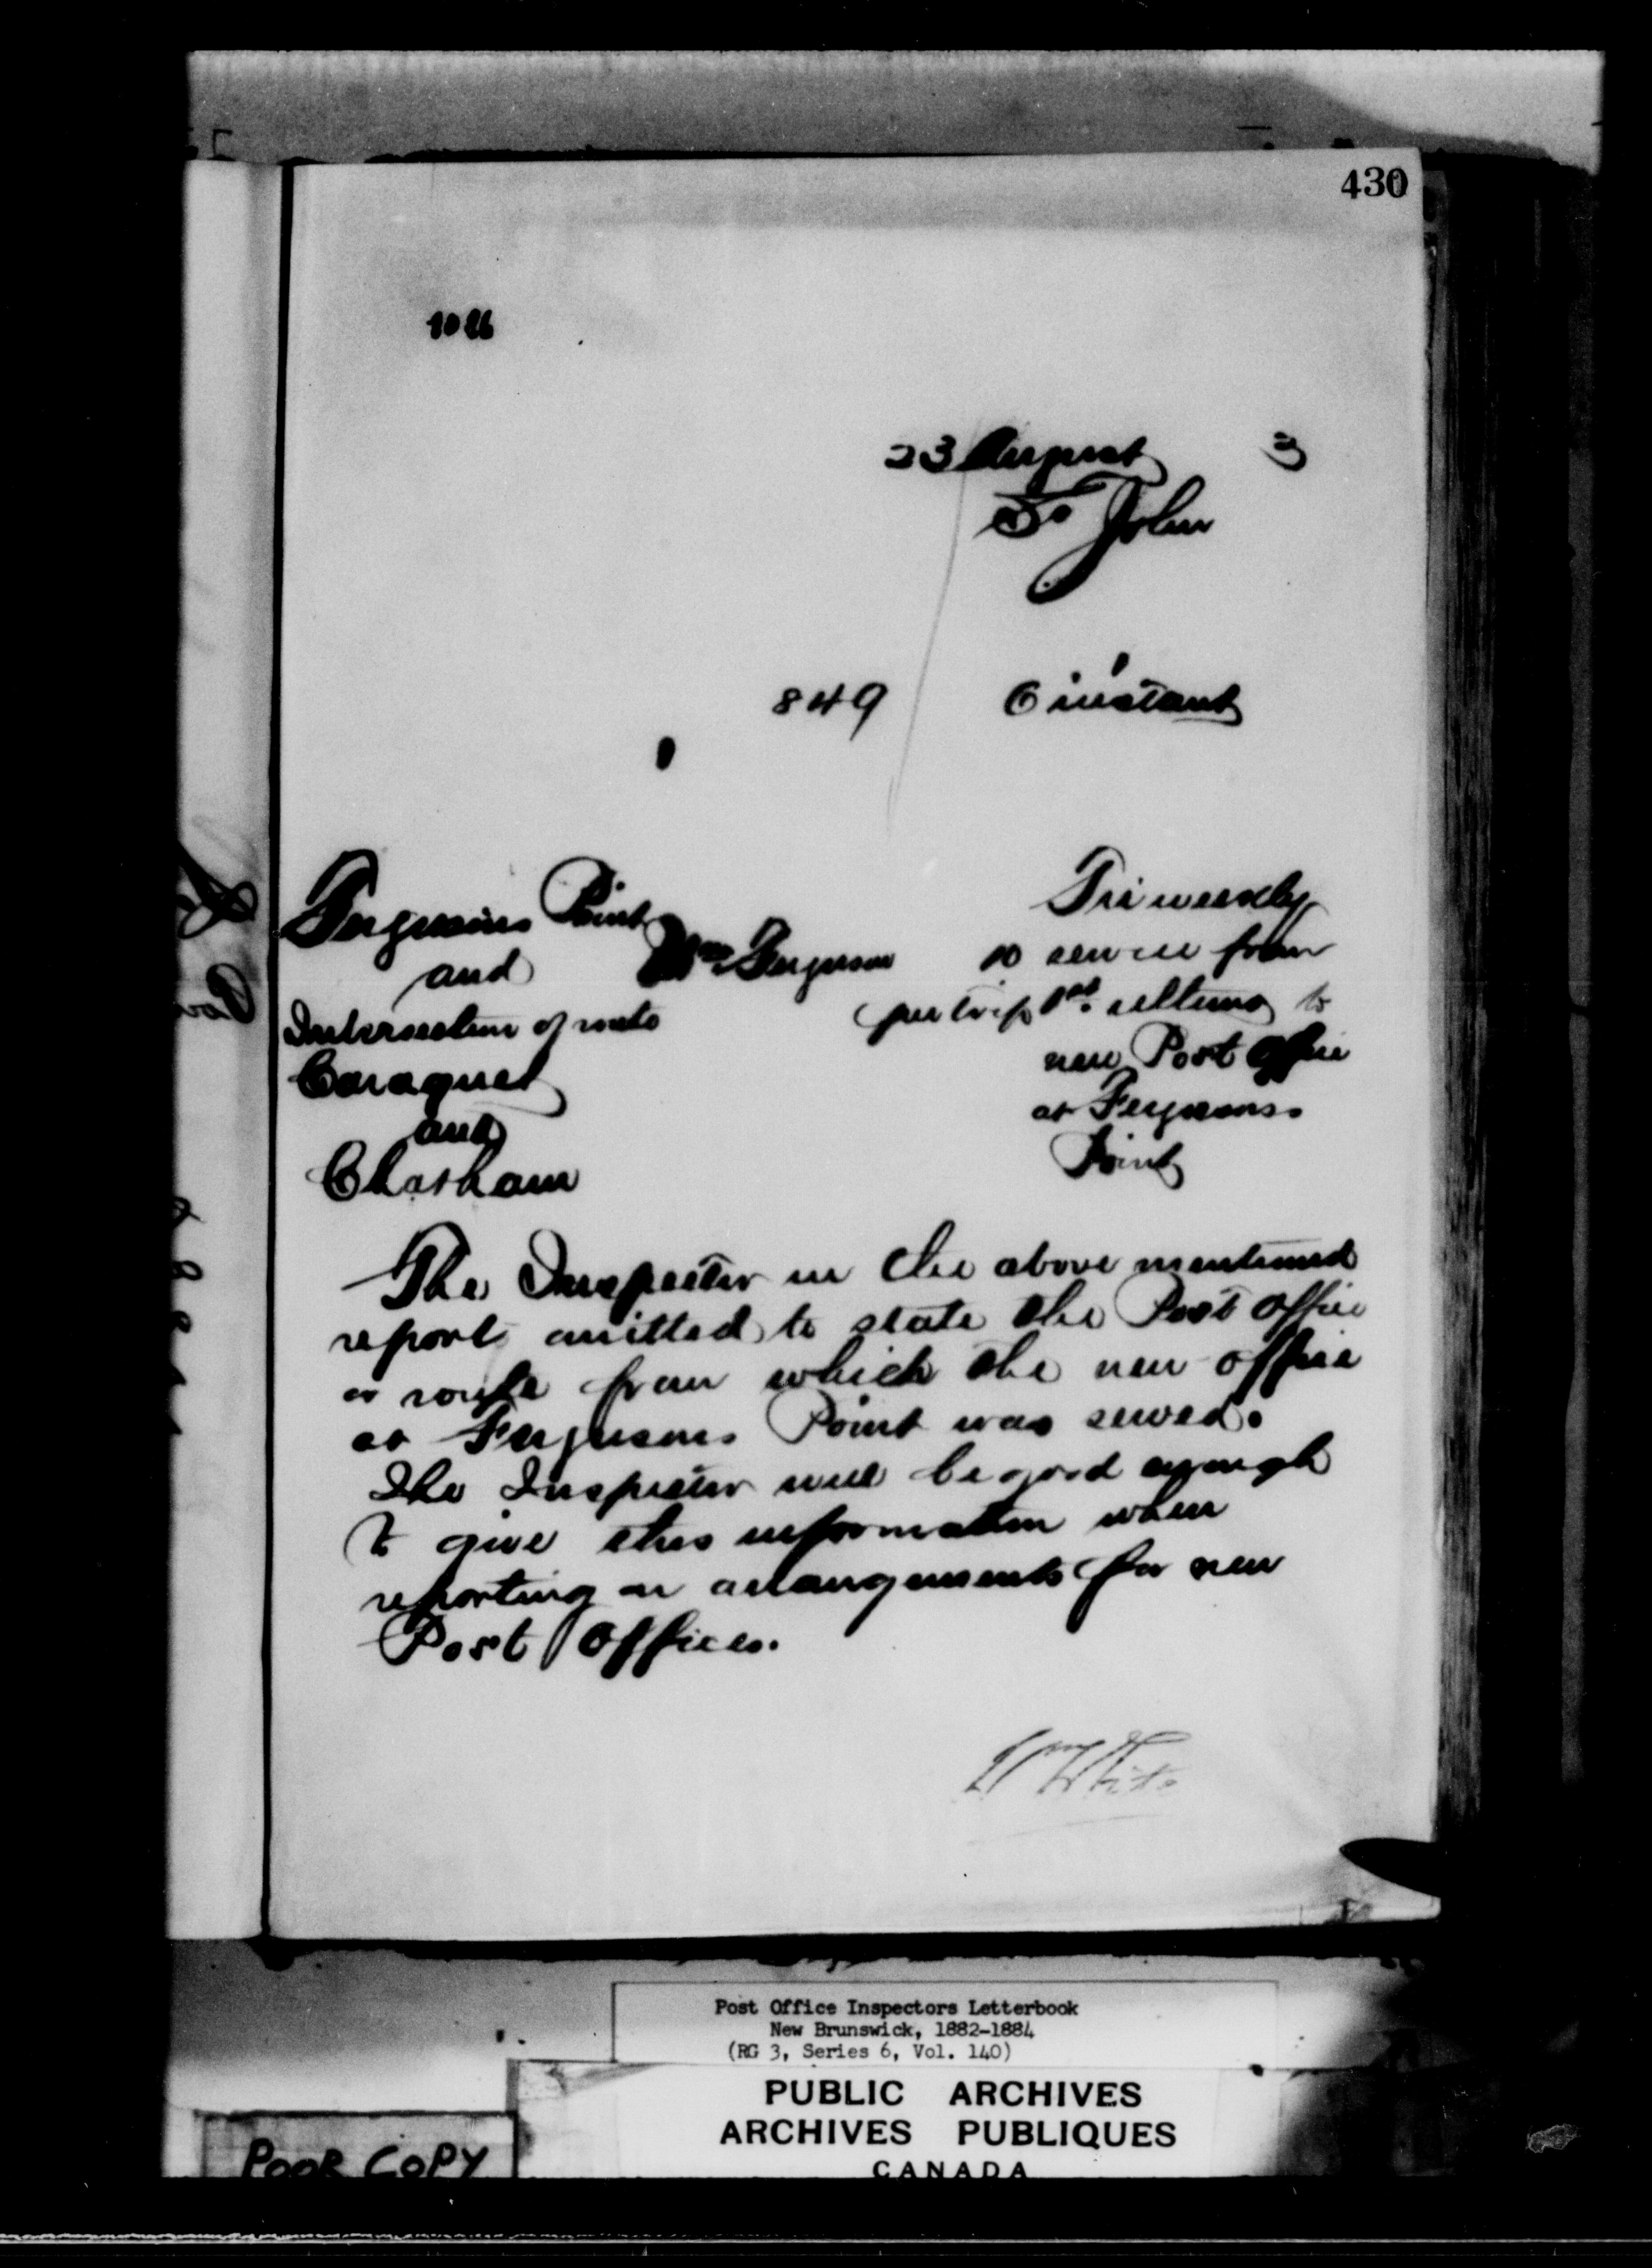 430
1086
23 August 3
St John
849 6 instant
Fergusons Point
and
Intersection of route
Caraquet
and
Chatham
Wm Ferguson
10
per trip
Triweekly
service from
1st ultimo to
new Post Office
at Fergusons
Point
The Inspector in the above mentioned
report omitted to state the Post Office
or route from which the new office
at Fergusons Point was served.
The Inspector will be good enough
to give this information when
reporting on arrangements for new
Post Offices.
Wm White
Post Office Inspectors Letterbook
New Brunswick, 1882-1884
(RG 3, Series 6, Vol. 140)
PUBLIC ARCHIVES
ARCHIVES PUBLIQUES
CANADA
POOR COPY